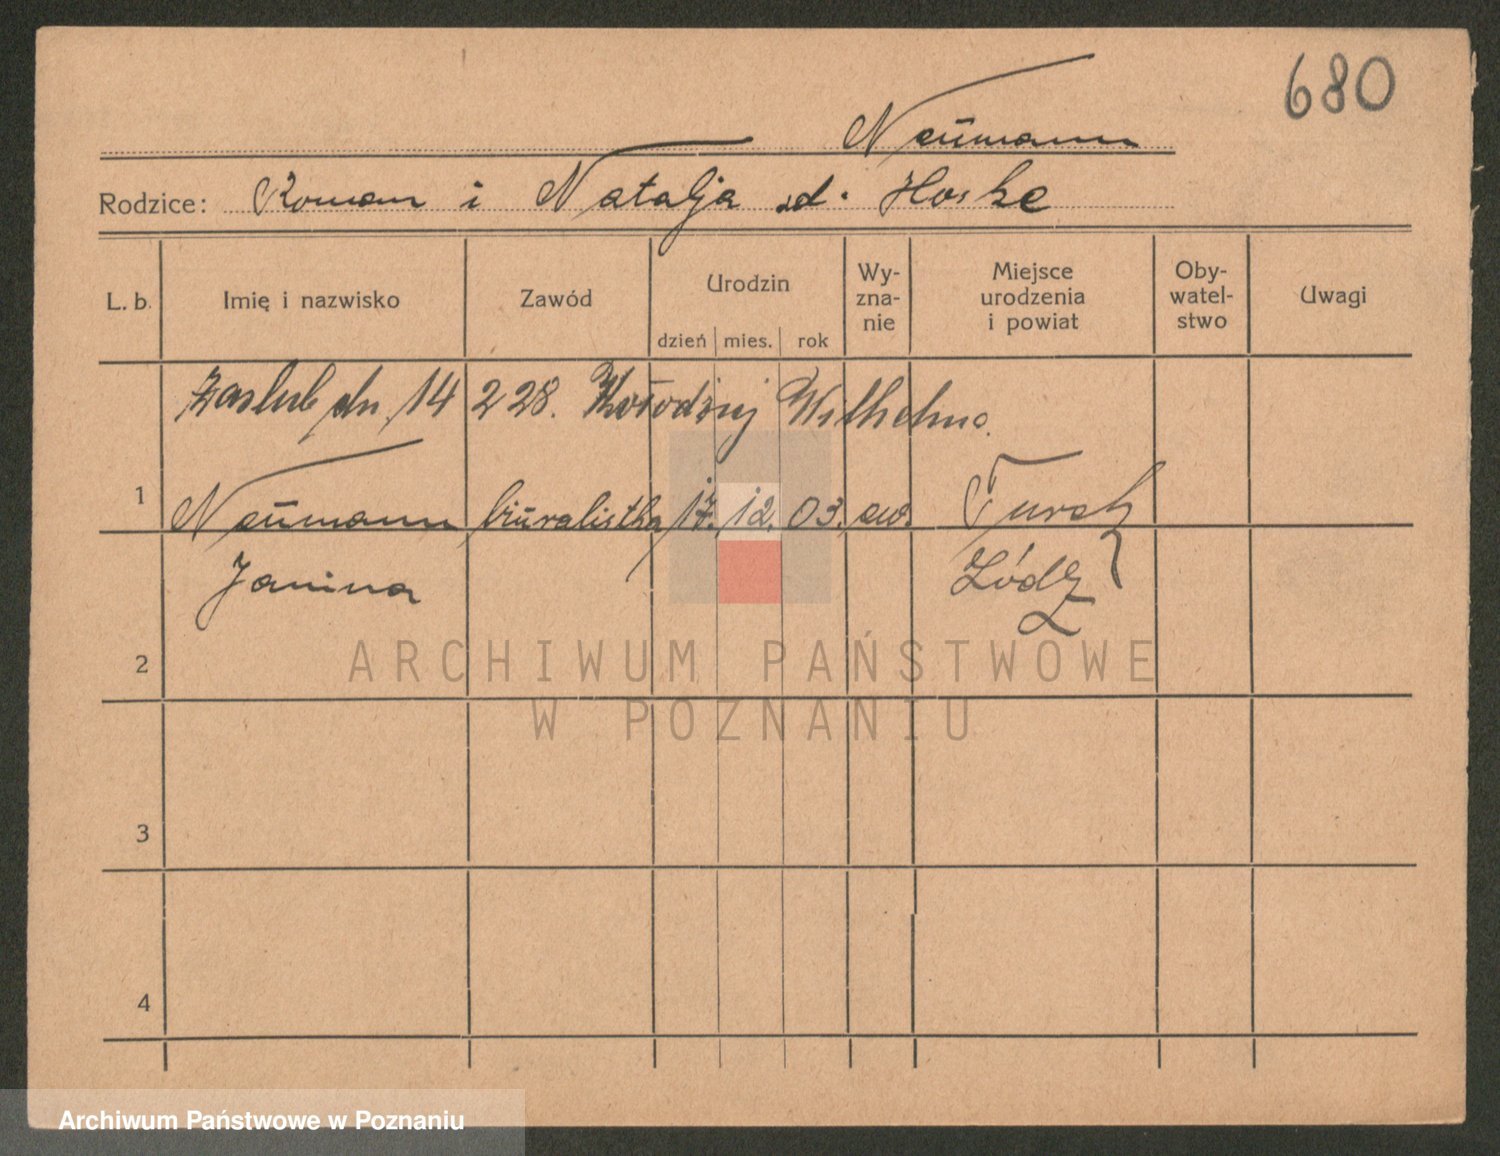 680
Neumann
Rodzice: Roman i Natalja zd. Hoske
L. b. Imię i nazwisko Zawód Urodzin dzień mies. rok Wy-zna-nie Miejsce urodzenia i powiat Oby-watel-stwo Uwagi
Zaślub dn 14 2 28. Kołodziej Wilhelma.
1 Neumann biuralistka 17. 12. 03. ew. Turek
Janina Łódź
2
3
4
ARCHIWUM PAŃSTWOWE
W POZNANIU
Archiwum Państwowe w Poznaniu